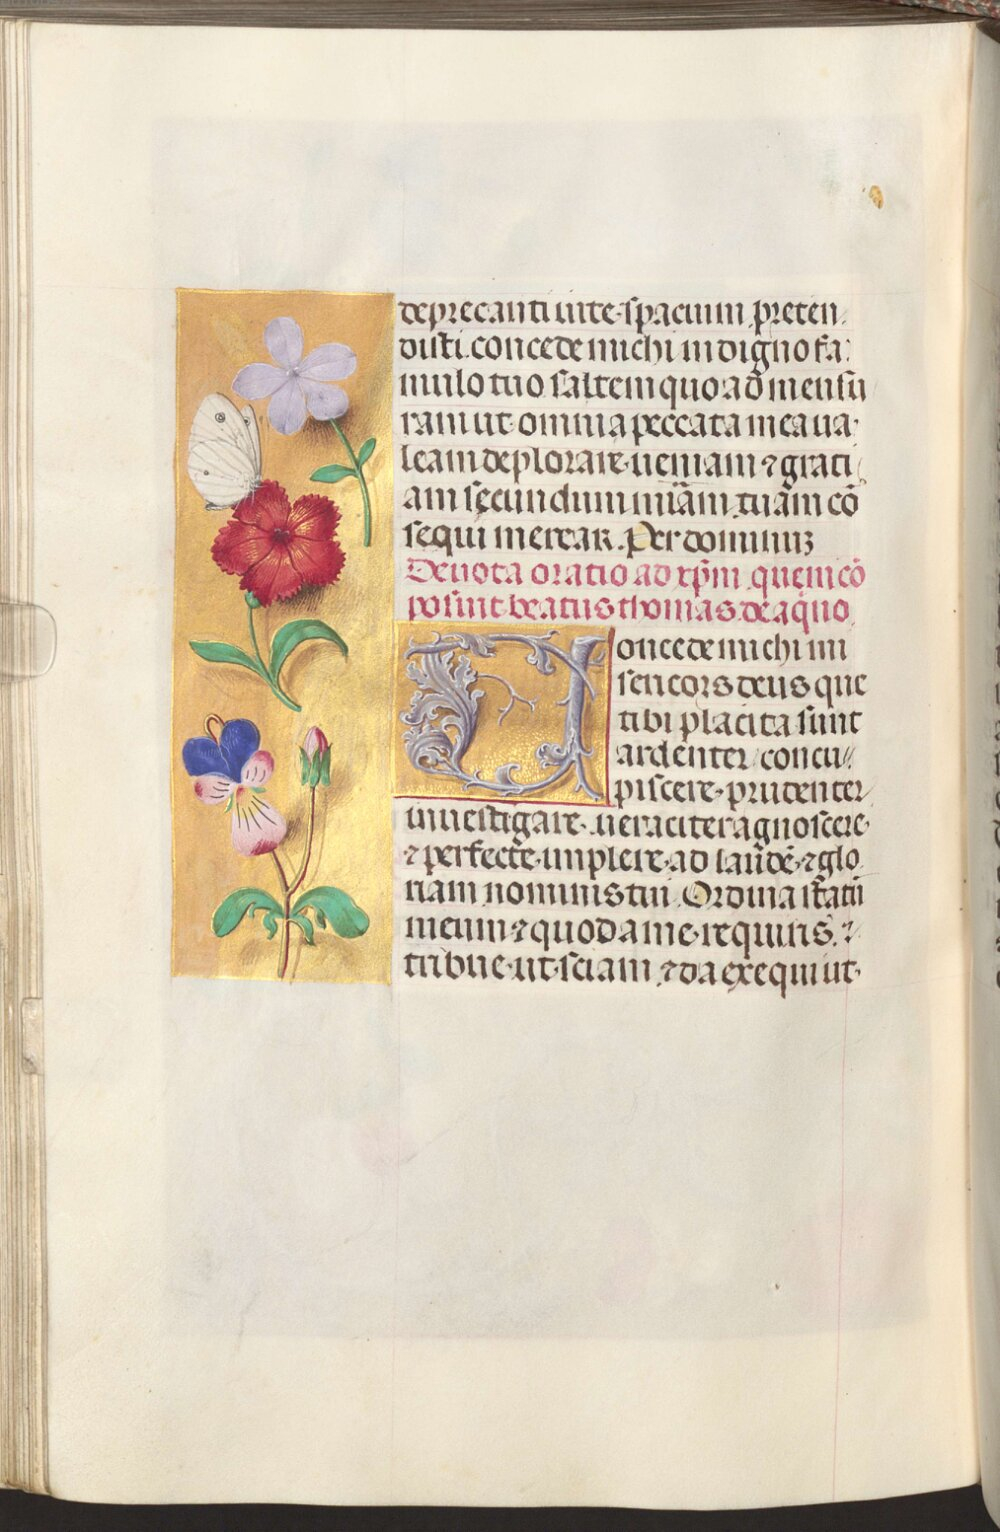 deprecanti uite spacium preten
disti. concede michi indigno fa
mulo tuo saltem quo ad mensu
ram ut omnia peccata mea ua
leam deplorare ueniam ⁊ grati
am secundum mīam tuām cō
sequi merear. Per dominuʒ
Deuota oratio ad xp̄m quem cō
posuit beatus thomas de aq̄no
Concede michi mi
sericors deus que
tibi placita sunt
ardenter concu//
piscere. prudenter
inuestigare. ueraciter agnoscere
⁊ perfecte implere. ad laudē ⁊ glo
riam nominis tui. Ordina statū
meum ⁊ quod a me requiris. ⁊
tribue ut sciam ⁊ da exequi ut